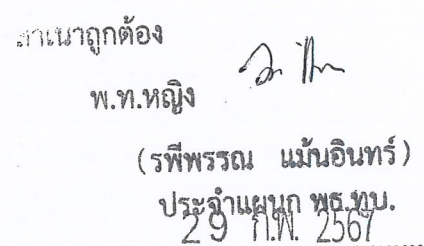 สำเนาถูกต้อง
พ.ท.หญิง
(รพีพรรณ แม้นอินทร์)
ประจำแผนก พธ.ทบ.
29 ก.พ. 2567